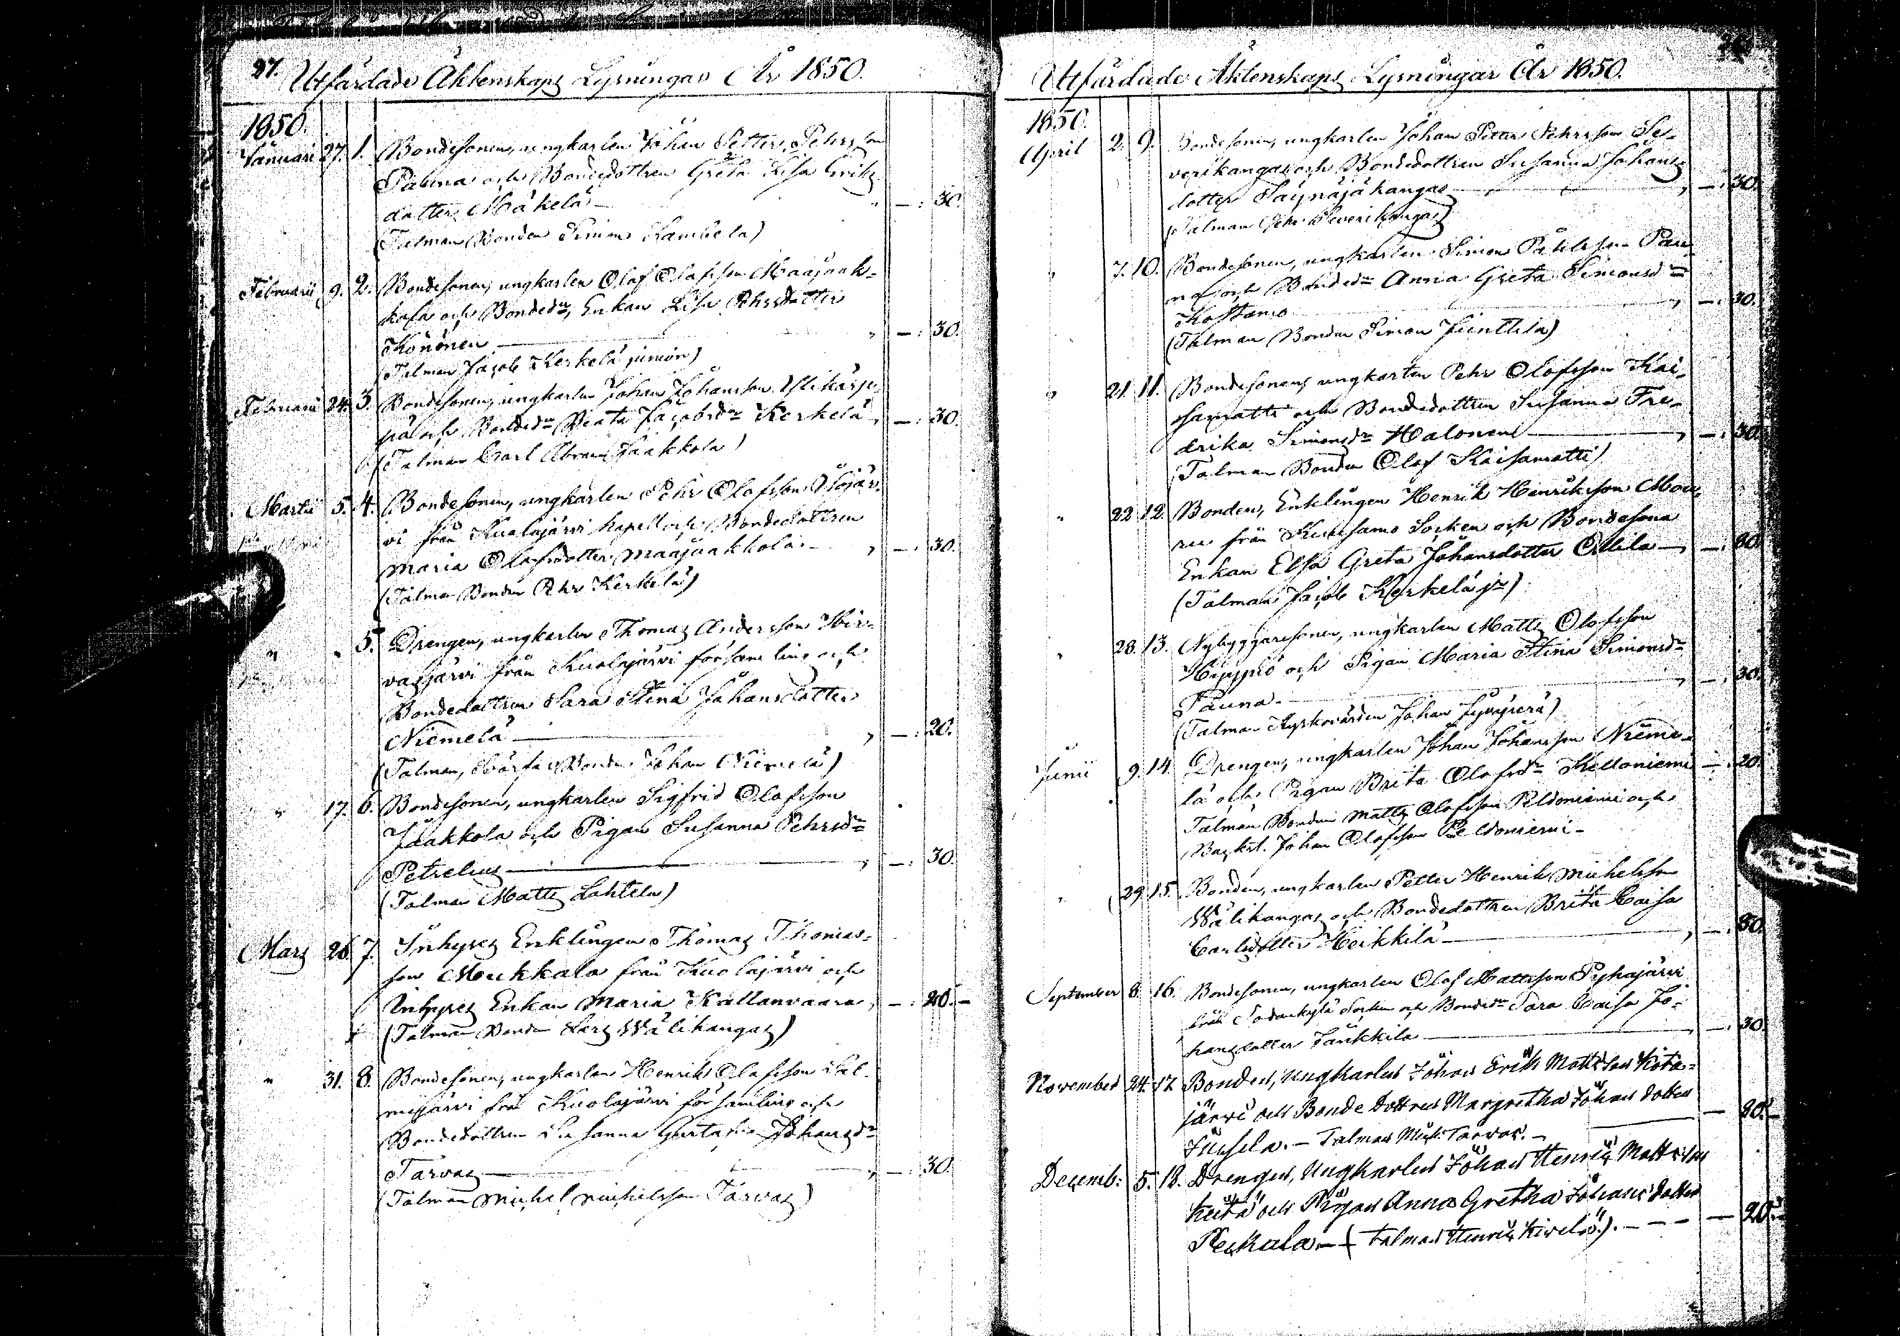 27.
Utfärdade Äktenskaps Lysningar År 1850.
1850.
Januari 27. 1. Bondesonen, ungkarlen Johan Petter Pehrsson
Pauna och Bondedottren Greta Lisa Eriks
dotter Mäkelä — " — . 30.
(Talman Bonden Simon)
Februarii 9. 2. Bondesonen, ungkarlen Olof Olofsson Maajaak-
kola och Bonded:r Enkan Lisa Pehrsdotter
Könönen — " — . 30.
(Talman Jacob Kerkelä junior)
Februarii 24. 3. Bondesonen, ungkarlen Johan Johansson
och Bonded:r Beata Jacobsd:r Kerkelä, — . 30.
(Talman Carl Abram Jaakkola)
Martii 5. 4. Bondesonen, ungkarlen Pehr Olofsson
vi från Kuolajärvi kapell och Bondedottren
Maria Olofsdotter Maajaakkola — , — . 30.
(Talman Bonden Pehr Kerkelä)
" " 5. Drengen, ungkarlen Thomas Andersson Hir-
vasjärvi från Kuolajärvi församling och
Bondedottren Sara Stina Johansdotter
Niemelä — , — . 20.
(Talman, Bonden Johan Niemelä)
" 17. 6. Bondesonen, ungkarlen Sigfrid Olofsson
Jaakkola och Pigan Susanna Pehrsd:r
Petrelius — , — . 30.
(Talman Matts Lahtela)
Mars 26. 7. Inhyses Enklingen Thomas Thomas-
son Mukkala från Kuolajärvi och
Inhyses Enkan Maria Kallanvaara, — . 20. —
(Talman Bonden Lars Wälikangas)
" 31. 8. Bondesonen, ungkarlen Henrik Olofsson Sal-
mijärvi från Kuolajärvi församling och
Bondedottren Susanna Gustava Johansd:r
Tarvas — , — . 30.
(Talman Michel Michelsson Tarvas)
Utfärdade Äktenskaps Lysningar År 1850.
1850.
April 2. 9. Bondesonen, ungkarlen Johan Petter Pehrsson Se-
verikangas och Bondedottren Susanna Johans
dotter Säynäjäkangas — , — . 30.
(Talman Pehr Severikangas)
" 7. 10. Bondesonen, ungkarlen Simon Påhlsson Pau-
na och Bonded:r Anna Greta Simonsd:r
Kostamo — , — . 30.
(Talman Bonden Simon Junttila)
" 21. 11. Bondesonen, ungkarlen Pehr Olofsson Kai-
sanmatti och Bondedottren Susanna Fre-
drika Simonsd:r Halonen — , — . 30.
(Talman Bonden Olof Kaisanmatti)
" 22. 12. Bonden, Enklingen Henrik Henriksson Mou-
ru från Kuusamo Socken och Bondesona
Enkan Elsa Greta Johansdotter Ollila — , — . 30.
(Talman Jacob Kerkelä j:r)
" 28. 13. Nybyggaresonen, ungkarlen Matts Olofsson
Hyypiö och Pigan Maria Stina Simonsd:r
Pauna — , — . 30.
(Talman Kyrkovärden Johan)
Junii 9. 14. Drengen, ungkarlen Johan Johansson Nieme-
lä och Pigan Brita Olofsd:r Kelloniemi — . 20.
Talman Bonden Matts Olofsson Peldoniemi och
Johan Olofsson Peldoniemi —
" 29. 15. Bonden, ungkarlen Petter Henrik Michelsson
Wälikangas och Bondedottren Brita Caisa
Carlsdotter Heikkilä — , — . 30.
September 8. 16. Bondesonen, ungkarlen Olof Mattsson Pyhäjärvi
från Sodankylä Socken och Bonded:r Sara Caisa Jo-
hansdotter — , — . 30.
November 24. 17. Bonden, Ungkarlen Johan Erik Mattsson Kota-
järvi och Bonde Dottren Margretha Johans dotter — 30. —
Juusela. — Talman Mich: Tarvas. —
Decemb: 5. 18. Drengen, Ungkarlen Johan Henric Mattsson
och Pigan Anna Gretha Johans dotter
Peskala — (Talman Henric Kivelä). — — — 20. —